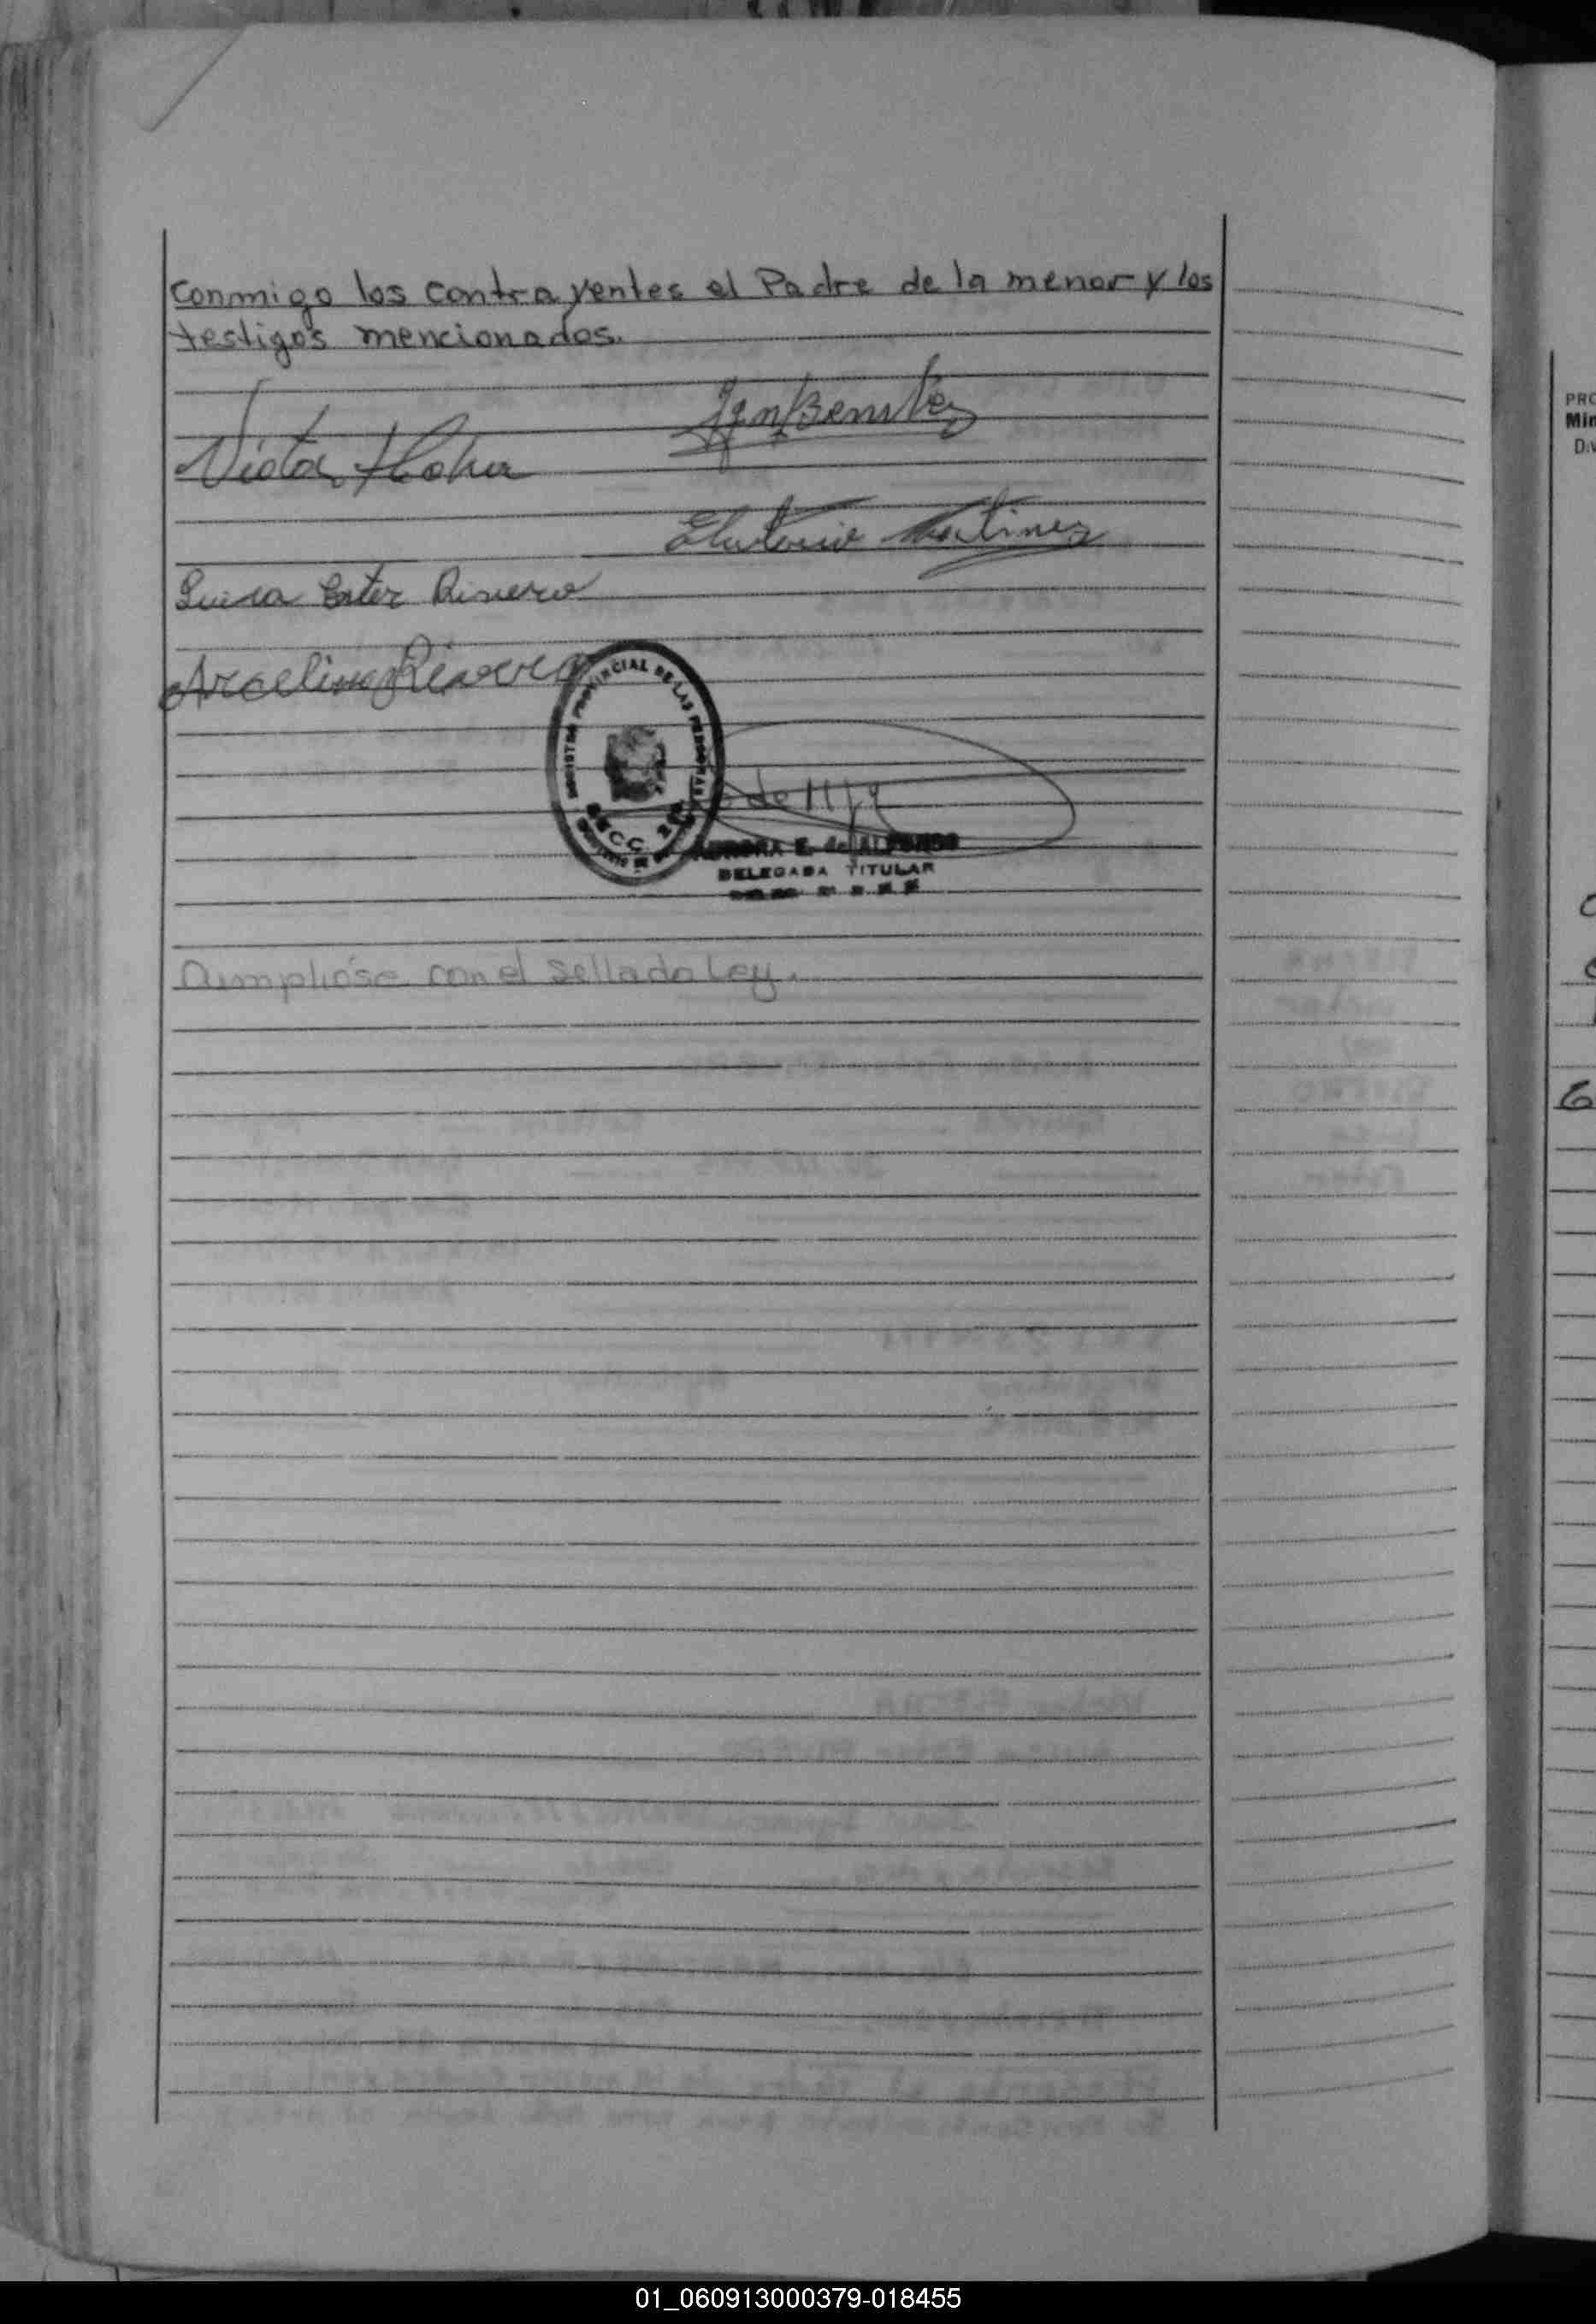 Conmigo los contrayentes el Padre de la menor y los
testigos mencionados.
Benitez
Victor
Martinez
Lucia Ester Rivero
Arcelino Rivero
REGISTRO PROVINCIAL DE LAS PERSONAS
SECC.
AURORA E. de ALFONSO
DELEGADA TITULAR
Cumplióse con el Sellado Ley.
PRO
Min
Div
01_060913000379-018455